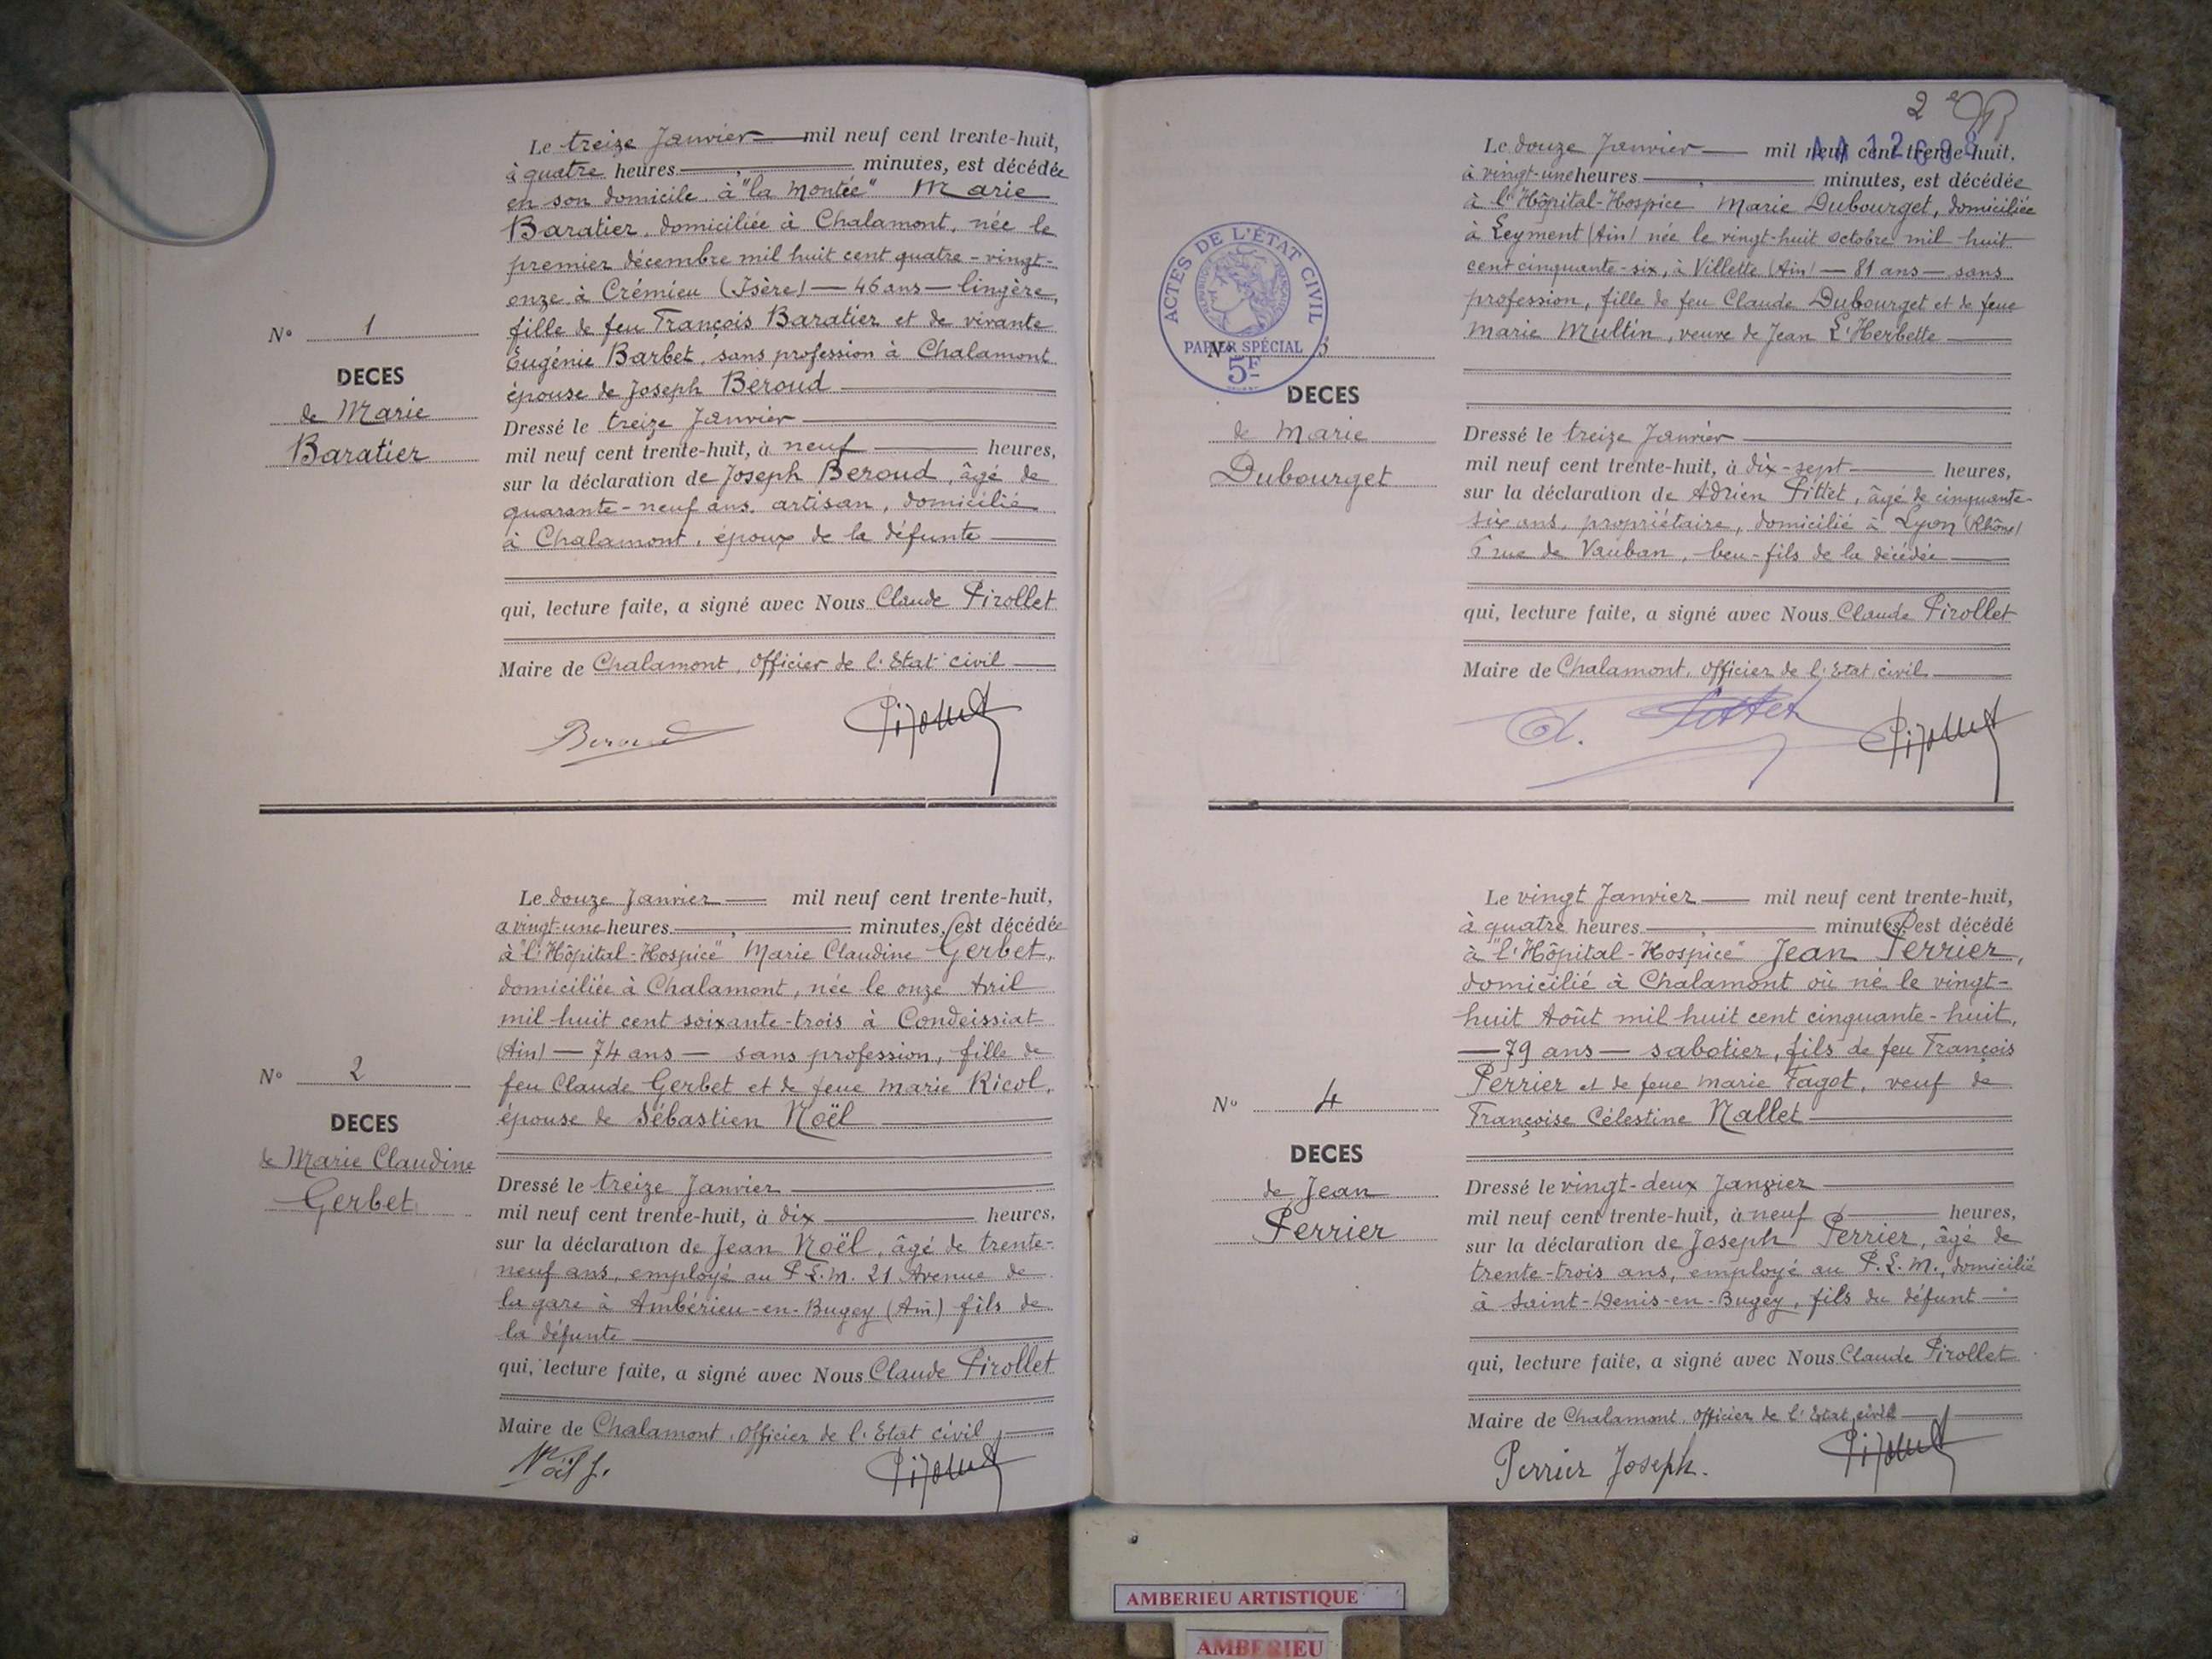 Le treize Janvier mil neuf cent trente-huit,
à quatre heures , minutes, est décédée
en son domicile à "la Montée" Marie
Baratier, domiciliée à Chalamont, née le
premier décembre mil huit cent quatre-vingt-
onze à Crémieu (Isère) — 46 ans — lingère,
fille de feu François Baratier et de vivante
Eugénie Barbet, sans profession à Chalamont
épouse de Joseph Beroud
N° 1
DECES
de Marie
Baratier
Dressé le treize Janvier
mil neuf cent trente-huit, à neuf heures,
sur la déclaration de Joseph Beroud, âgé de
quarante-neuf ans, artisan, domicilié
à Chalamont, époux de la défunte
qui, lecture faite, a signé avec Nous Claude Pirollet
Maire de Chalamont, Officier de l'Etat civil
Beroud
Le douze Janvier mil neuf cent trente-huit,
à vingt-une heures , minutes, est décédée
à "l'Hôpital-Hospice" Marie Claudine Gerbet,
domiciliée à Chalamont, née le onze Avril
mil huit cent soixante-trois à Condeissiat
(Ain) — 74 ans — sans profession, fille de
feu Claude Gerbet et de feue Marie Ricol,
épouse de Sébastien Noël
N° 2
DECES
de Marie Claudine
Gerbet
Dressé le treize Janvier
mil neuf cent trente-huit, à dix heures,
sur la déclaration de Jean Noël, âgé de trente-
neuf ans, employé au P.L.M. 21 Avenue de
la gare à Ambérieu-en-Bugey (Ain) fils de
la défunte
qui, lecture faite, a signé avec Nous Claude Pirollet
Maire de Chalamont, Officier de l'Etat civil
Noël J.
2
Le douze Janvier mil neuf cent trente-huit,
à vingt-une heures , minutes, est décédée
à l'Hôpital-Hospice Marie Dubourget, domiciliée
à Leyment (Ain) née le vingt-huit octobre mil huit
cent cinquante-six, à Villette (Ain) — 81 ans — sans
profession, fille de feu Claude Dubourget et de feue
Marie Multin, veuve de Jean L'Herbette
ACTES DE L'ÉTAT CIVIL
RÉPUBLIQUE FRANÇAISE
PAPIER SPÉCIAL
5F
N° 3
DECES
de Marie
Dubourget
Dressé le treize Janvier
mil neuf cent trente-huit, à dix-sept heures,
sur la déclaration de Adrien Pittet, âgé de cinquante-
six ans, propriétaire, domicilié à Lyon (Rhône)
rue de Vauban, beu-fils de la décédée
qui, lecture faite, a signé avec Nous Claude Pirollet
Maire de Chalamont, Officier de l'Etat civil
Le vingt Janvier mil neuf cent trente-huit,
à quatre heures , minutes, est décédé
à "l'Hôpital-Hospice" Jean Perrier,
domicilié à Chalamont où né le vingt-
huit Août mil huit cent cinquante-huit,
— 79 ans — sabotier, fils de feu François
Perrier et de feue Marie Fagot, veuf de
Françoise Célestine Nallet
N° 4
DECES
de Jean
Perrier
Dressé le vingt-deux Janvier
mil neuf cent trente-huit, à neuf heures,
sur la déclaration de Joseph Perrier, âgé de
trente-trois ans, employé au P.L.M., domicilié
à Saint-Denis-en-Bugey, fils du défunt
qui, lecture faite, a signé avec Nous Claude Pirollet
Maire de Chalamont, Officier de l'Etat civil
Perrier Joseph.
AMBERIEU ARTISTIQUE
AMBERIEU